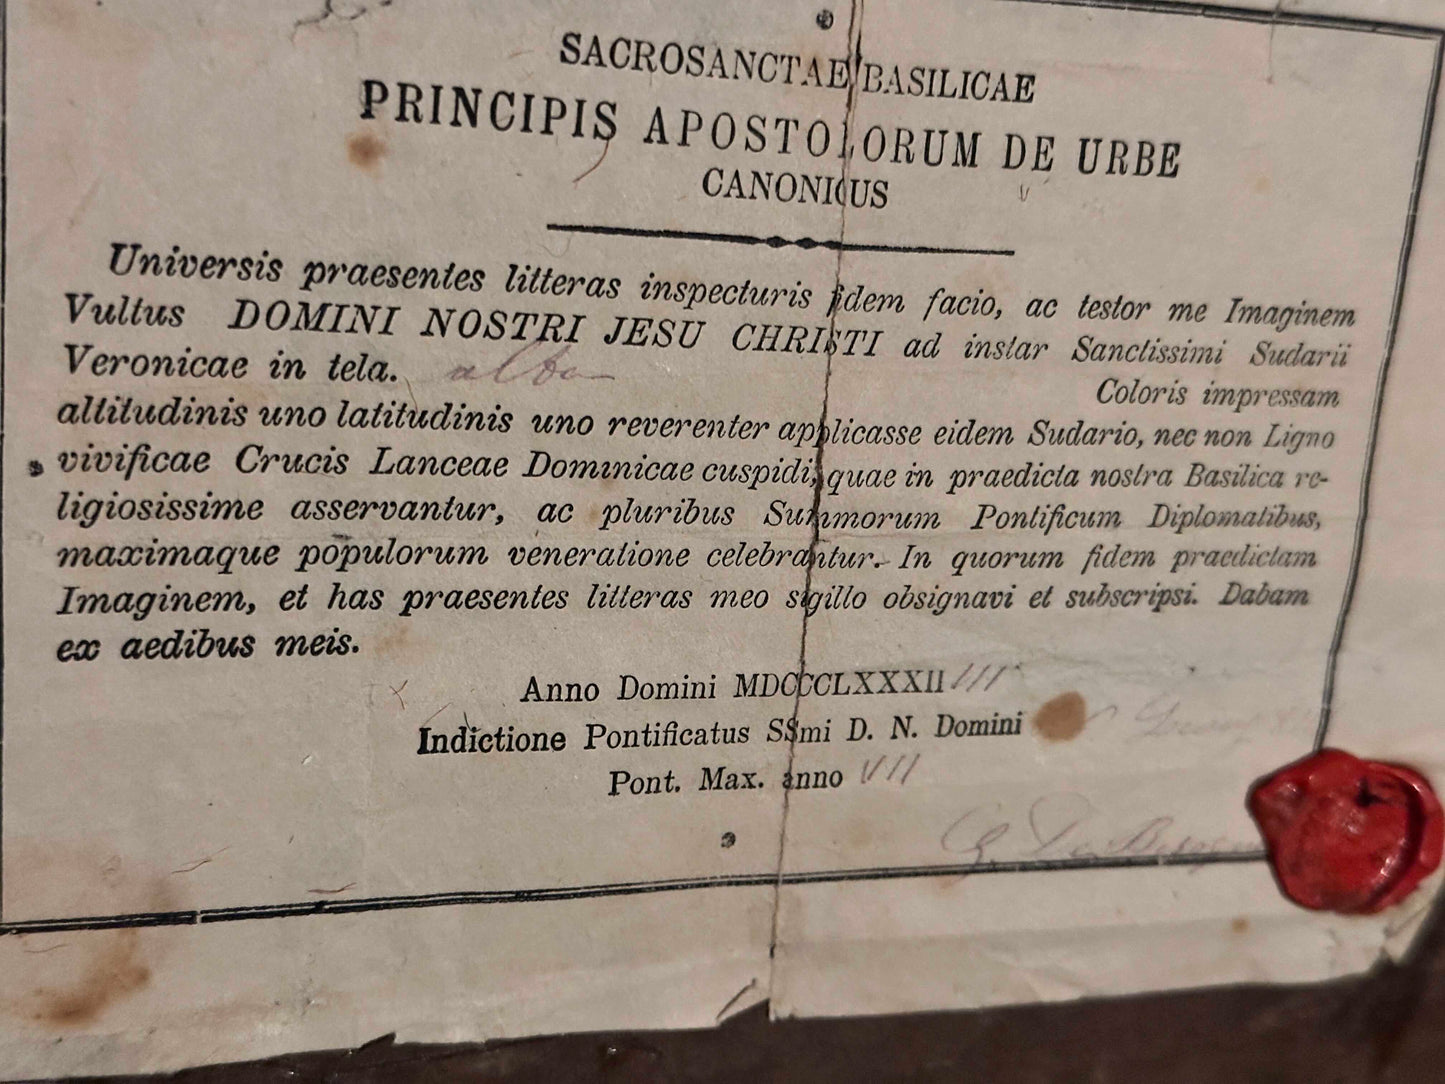 SACROSANCTAE BASILICAE
PRINCIPIS APOSTOLORUM DE URBE
CANONICUS
Universis praesentes litteras inspecturis fidem facio, ac testor me Imaginem
Vultus DOMINI NOSTRI JESU CHRISTI ad instar Sanctissimi Sudarii
Veronicae in tela. alba Coloris impressam
altitudinis uno latitudinis uno reverenter applicasse eidem Sudario, nec non Ligno
vivificae Crucis Lanceae Dominicae cuspidi, quae in praedicta nostra Basilica re-
ligiosissime asservantur, ac pluribus Summorum Pontificum Diplomatibus,
maximaque populorum veneratione celebrantur. In quorum fidem praedictam
Imaginem, et has praesentes litteras meo sigillo obsignavi et subscripsi. Dabam
ex aedibus meis.
Anno Domini MDCCCLXXXII III
Indictione Pontificatus SSmi D. N. Domini
Pont. Max. anno VII